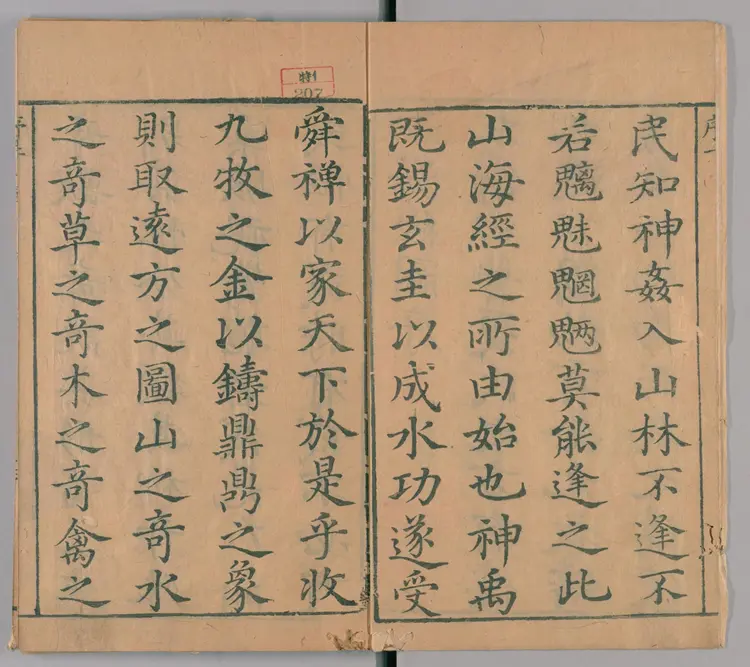 民知神姦入山林不逢不
若魑魅魍魎莫能逢之此
山海經之所由始也神禹
既錫玄圭以成水功遂受
舜禅以家天下於是乎收
九牧之金以鑄鼎鼎之象
則取遠方之圖山之竒水
之竒草之竒木之竒禽之
207